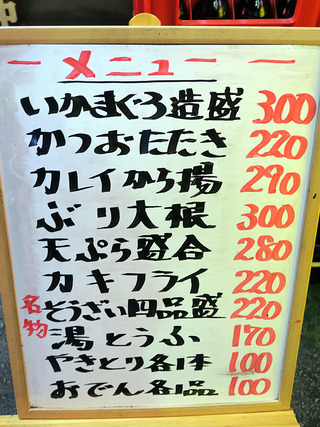 ー メニュー ー
いかまぐろ造盛 300
かつおたたき 220
カレイから揚 290
ぶり大根 300
天ぷら盛合 280
カキフライ 220
名物 とうざい四品盛 220
湯とうふ 170
やきとり各1本 100
おでん各1品 100